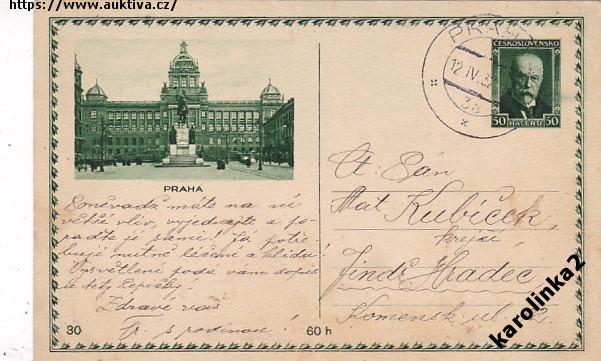 https://www.auktiva.cz/
PRAHA
12 IV.
38
ČESKOSLOVENSKO
50 HALÉŘŮ 50
PRAHA
Poněvadž máte na ni
větší vliv, vyjednejte a po-
raďte jí sami! Já potře-
buji nutné léčení a klidu!
Vysvětlení podá vám dopis
u tety Lepičky!
Zdraví vás
Fr. s rodinou!
Ct. Pán
Mat. Kubíček,
krejčí,
Jindř. Hradec
Komensk. ul. 2
30
60 h
karolinka2